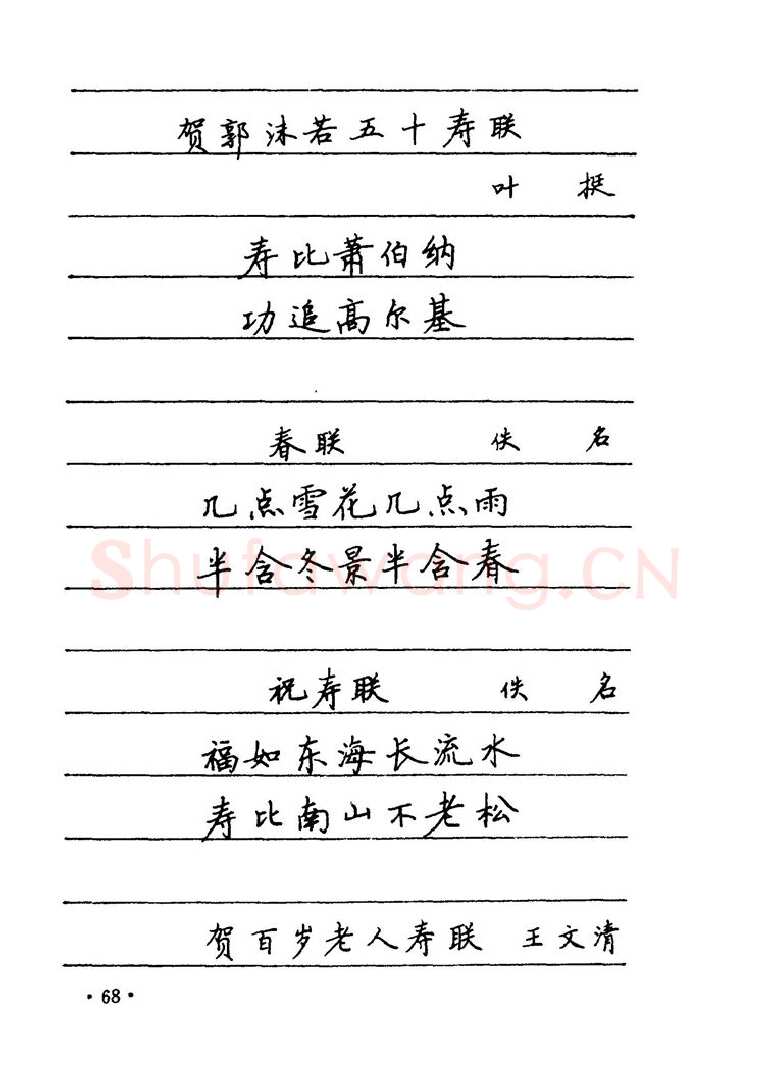 贺郭沫若五十寿联
叶挺
寿比萧伯纳
功追高尔基
春联 佚名
几点雪花几点雨
半含冬景半含春
Shufawang.CN
祝寿联 佚名
福如东海长流水
寿比南山不老松
贺百岁老人寿联 王文清
·68·